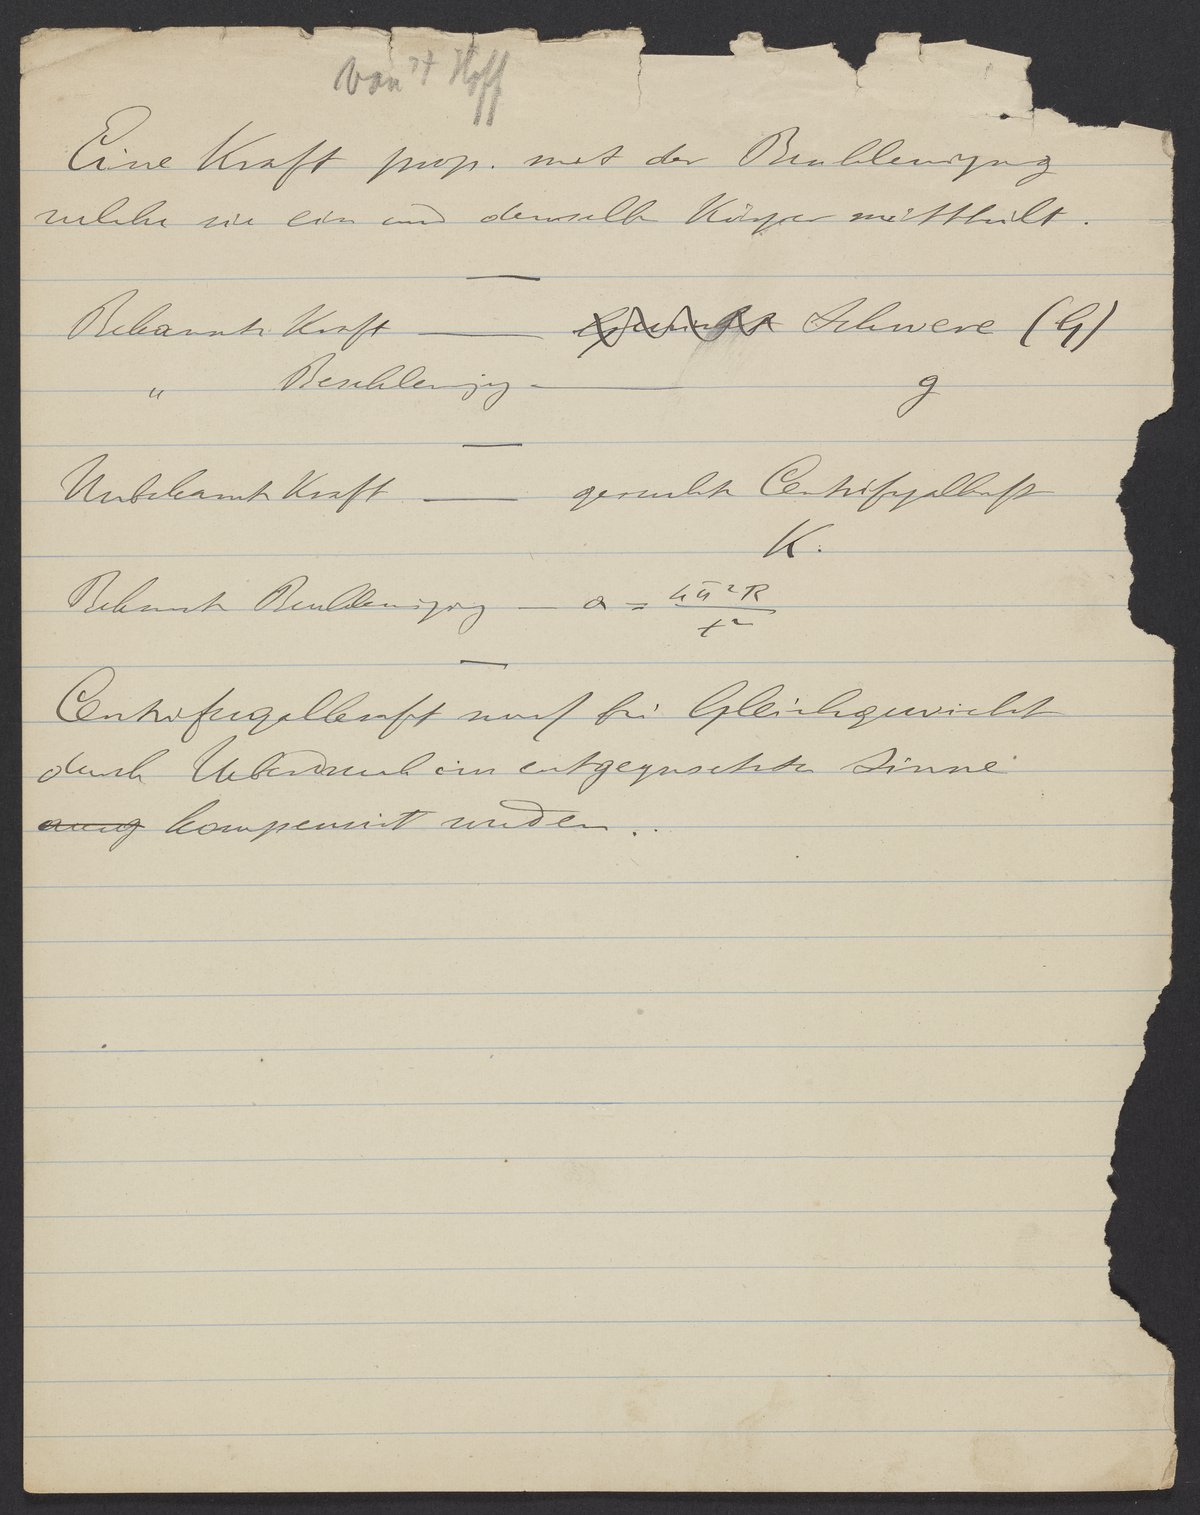 van 't Hoff
Eine Kraft prop. mit der Beschleunigung
welche sie ein und demselben Körper mittheilt.
Bekannte Kraft — Gewicht Schwere (G)
" Beschleunigung — g
Unbekannte Kraft — gesuchte Centrifugalkraft
K.
Bekannte Beschleunigung — a = 4π²R / t²
Centrifugalkraft muss bei Gleichgewicht
durch Ueberdruck im entgegengesetzten Sinne
kompensirt werden..